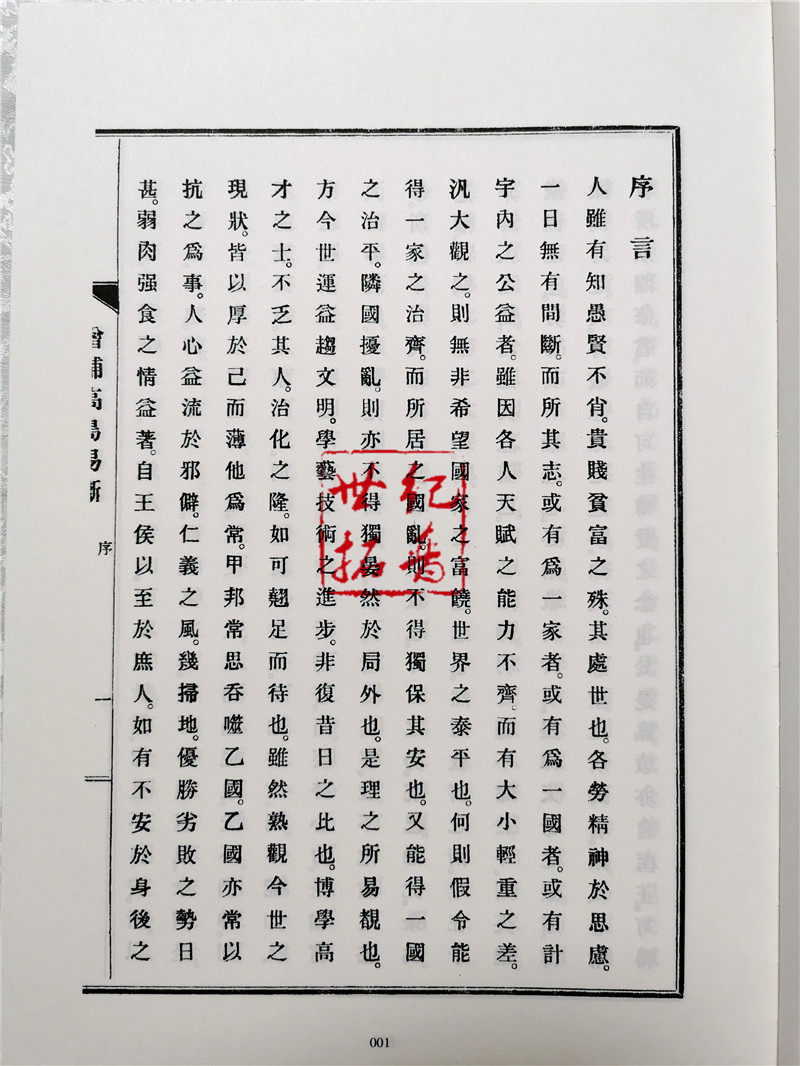 序言
人雖有知愚賢不肖。貴賤貧富之殊。其處世也。各勞精神於思慮。
一日無有間斷。而所其志。或有爲一家者。或有爲一國者。或有計
宇內之公益者。雖因各人天賦之能力不齊。而有大小輕重之差。
汎大觀之。則無非希望國家之富饒。世界之泰平也。何則假令能
得一家之治齊。而所居之國亂。則不得獨保其安也。又能得一國
之治平。隣國擾亂。則亦不得獨晏然於局外也。是理之所易覩也。
方今世運益趨文明。學藝技術之進步。非復昔日之比也。博學高
才之士。不乏其人。治化之隆。如可翹足而待也。雖然熟觀今世之
現狀。皆以厚於己而薄他爲常。甲邦常思吞噬乙國。乙國亦常以
抗之爲事。人心益流於邪僻。仁義之風。幾掃地。優勝劣敗之勢日
甚。弱肉强食之情益著。自王侯以至於庶人。如有不安於身後之
增補高島易斷
序
一
世紀
拓善
001